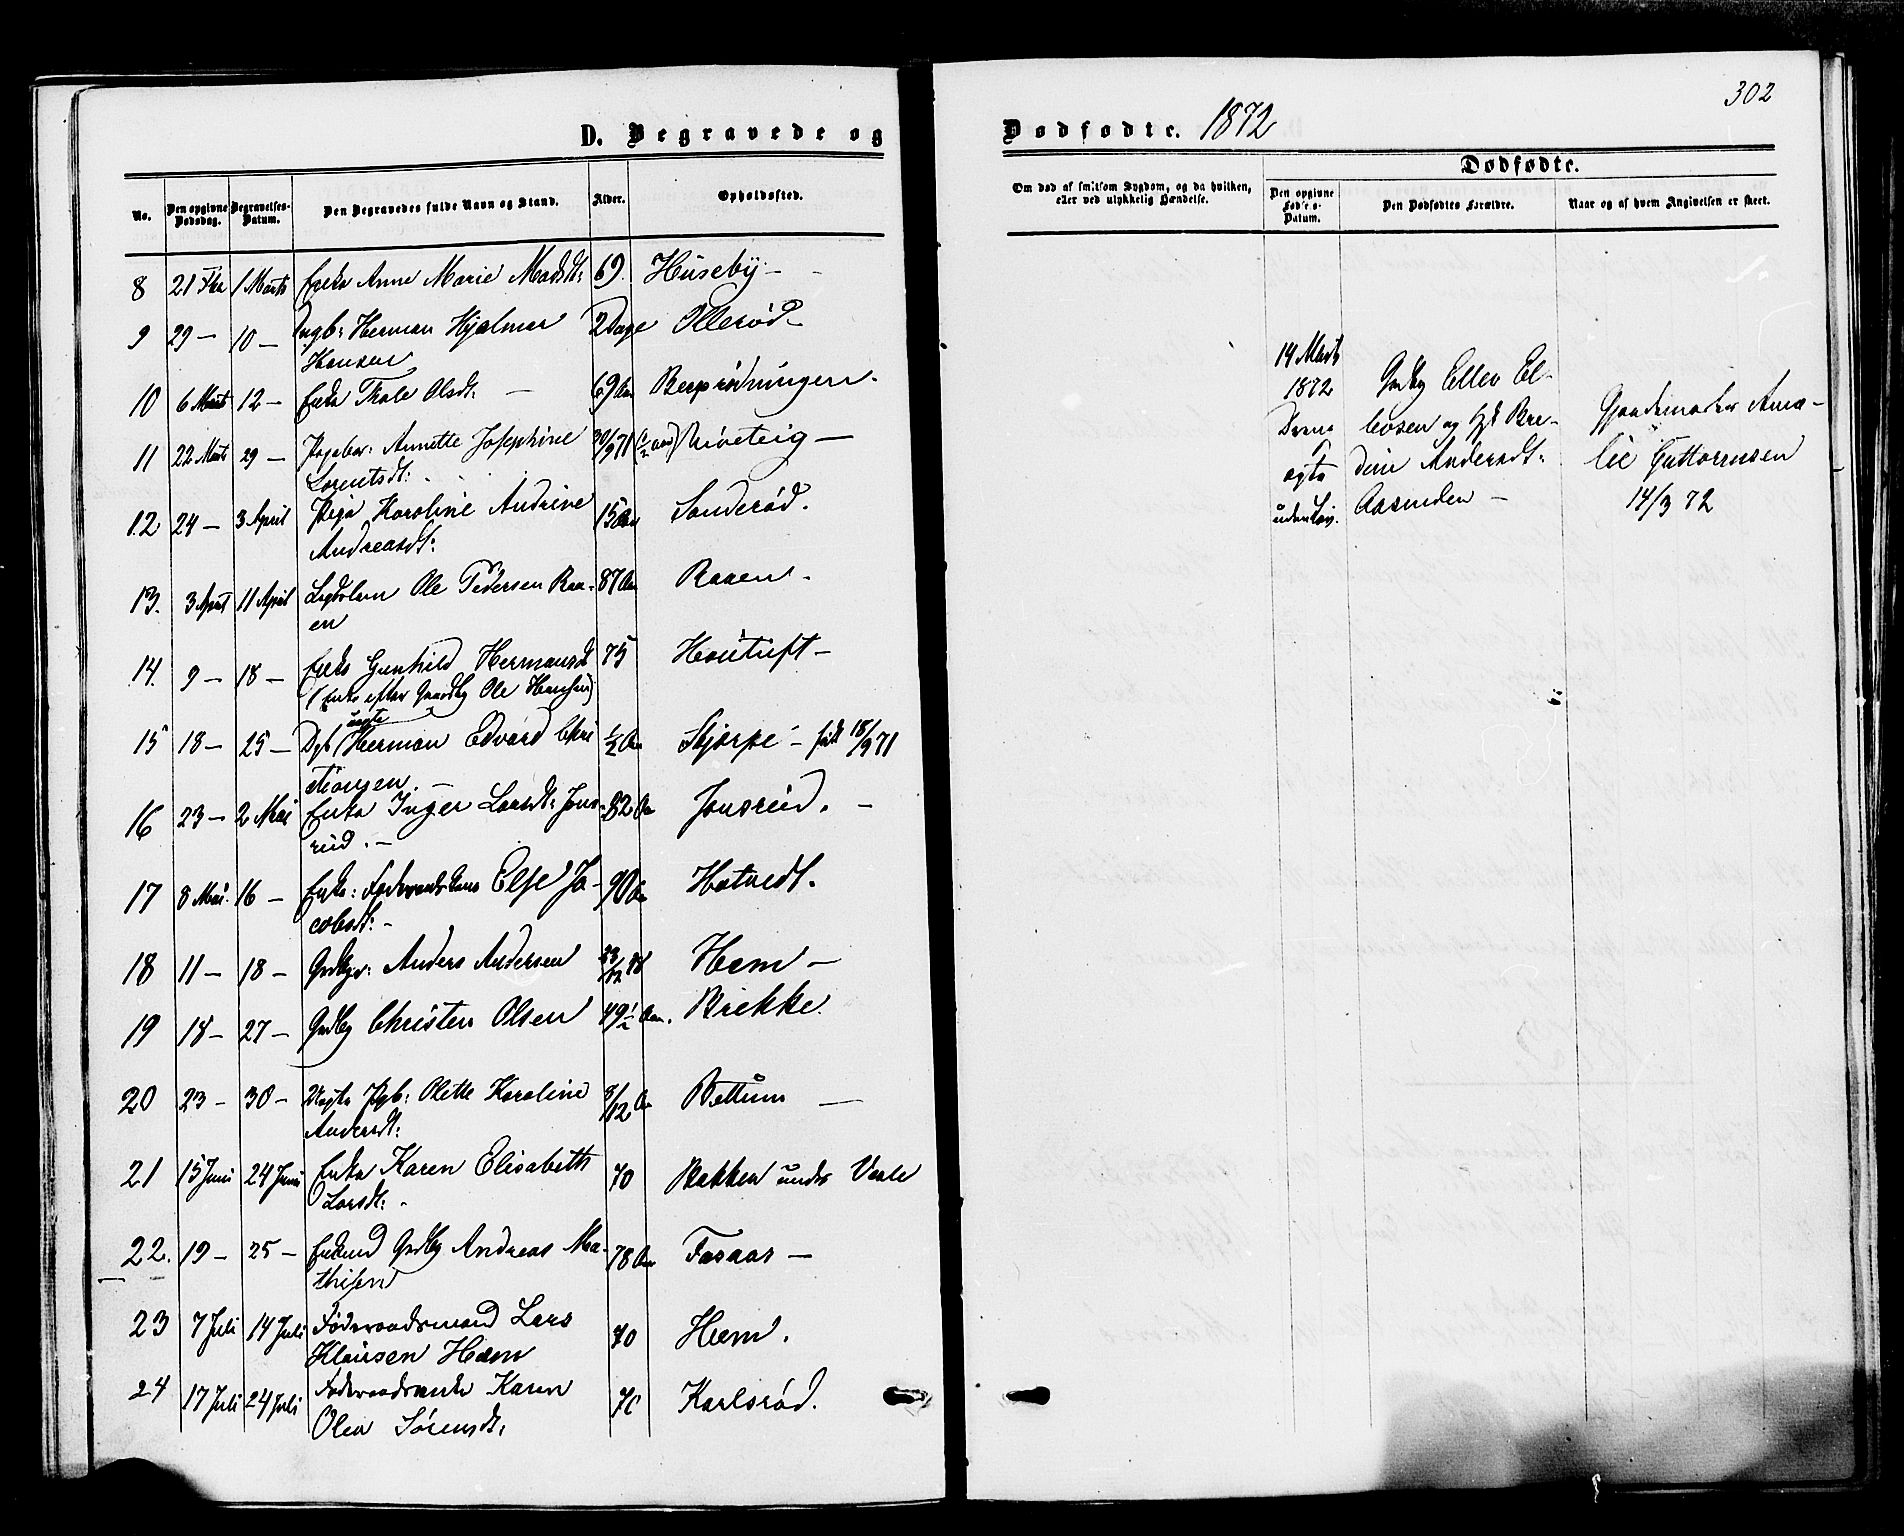 302
D. Begravede og Dødfødte. 1872
No.
Den opgivne Dødsdag.
Begravelses-Datum.
Den Begravedes fulde Navn og Stand.
Alder.
Opholdssted.
Om død af smitsom Sygdom, og da hvilken, eller ved ulykkelig Hændelse.
Dødfødte.
Den opgivne Fødsels-Datum.
Den Dødfødtes Forældre.
Naar og af hvem Angivelsen er skeet.
8 21 1 Marts Enke Anne Marie Madsdt: 69. Huseby –
9 29 – 10 – Herman Hjalmar 2 Dage Ollerød –
Hansen
10 6 Marts 12 – Enke Thale Olsdt: – 69 Aar
11 22 Marts 29 – Pigebr: Annette Josephine 30/9 71 (1/2 aar)
Lorentsdt:
12 24 – 3 April Pige Karoline Andrine 15 Aar Sonderød.
Andreasdt:
13. 3 April 11 April Ole Pedersen Raa- 87 Aar Raaen.
en
14. 9 – 18 – Enke Gunhild Hermansdt 75
(Enke efter Gaardbr Ole Hansen)
uægte
15 18 – 25 – Dgb Herman Edvard Chri 1/2 Aar Skjerpe – født 18/9 71
stiansen. –
16 23 – 2 Mai Enke Inger Larsdt: Jons- 82 Aar Jonsrud. –
rud. –
17 8 Mai. 16 – Enke: Else Ja- 90 Aar Hotvedt.
cobsdt: –
18 11 – 18 – Anders Andersen Hem –
19 18 – 27 – Grdbr Christen Olsen 49 1/2 Aar. Brekke.
20 23 – 30 – Uægte Pgb: Olette Karoline 8/12 Aar Bettum –
Andersdt:
21 15 Juni 24 Juni Enke Karen Elisabeth 70 Bakken under Vaale
Larsdt: –
22. 19 – 25 – Enkemd Grdbr Andreas Ma- 78 Aar Faraas –
thisen
23 7 Juli 14 Juli Føderaadsmand Lars 70 Hem.
Klausen Hæm
24 17 Juli 24 Juli Føderaadsenke Karen Karlsrød.
Olea Sørensdt:
14 Marts
1872 Grdbr Ellev El-
Dreng levsen og Bre- Gjordemoder Ama-
ægte dine Andersdt: lie Guttormsen
Aasenden – 14/3 72